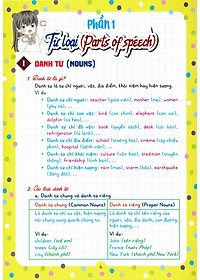 Phần 1
Từ loại (Parts of speech)
1 DANH TỪ (NOUNS)
1. Danh từ là gì?
Danh từ là từ chỉ người, vật, địa điểm, khái niệm hay hiện tượng.
Ví dụ:
- Danh từ chỉ người: teacher (giáo viên), mother (mẹ), women
(phụ nữ), ...
- Danh từ chỉ con vật: cat (con mèo), elephant (con voi),
dolphin (cá heo), ...
- Danh từ chỉ đồ vật: book (quyển sách), desk (cái bàn),
refrigerator (tủ lạnh), ...
- Danh từ chỉ địa điểm: school (trường học), hospital (bệnh
viện), temple (đền), ...
- Danh từ chỉ khái niệm: culture (văn hoá), tradition (truyền
thống), friendship (tình bạn), ...
- Danh từ chỉ hiện tượng: rain (mưa), storm (bão), earthquake
(động đất), ...
2. Các loại danh từ
a. Danh từ chung và danh từ riêng
Danh từ chung (Common Nouns)
Là danh từ chỉ sự vật, hiện tượng
nói chung xung quanh chúng ta.
Ví dụ:
children (trẻ em)
trees (cây cối)
city (thành phố)
Danh từ riêng (Proper Nouns)
Là danh từ chỉ tên riêng của
người, vật, địa danh, con đường,
hiện tượng, ...
Ví dụ:
John (tên riêng)
France (nước Pháp)
New York (thành phố New York)